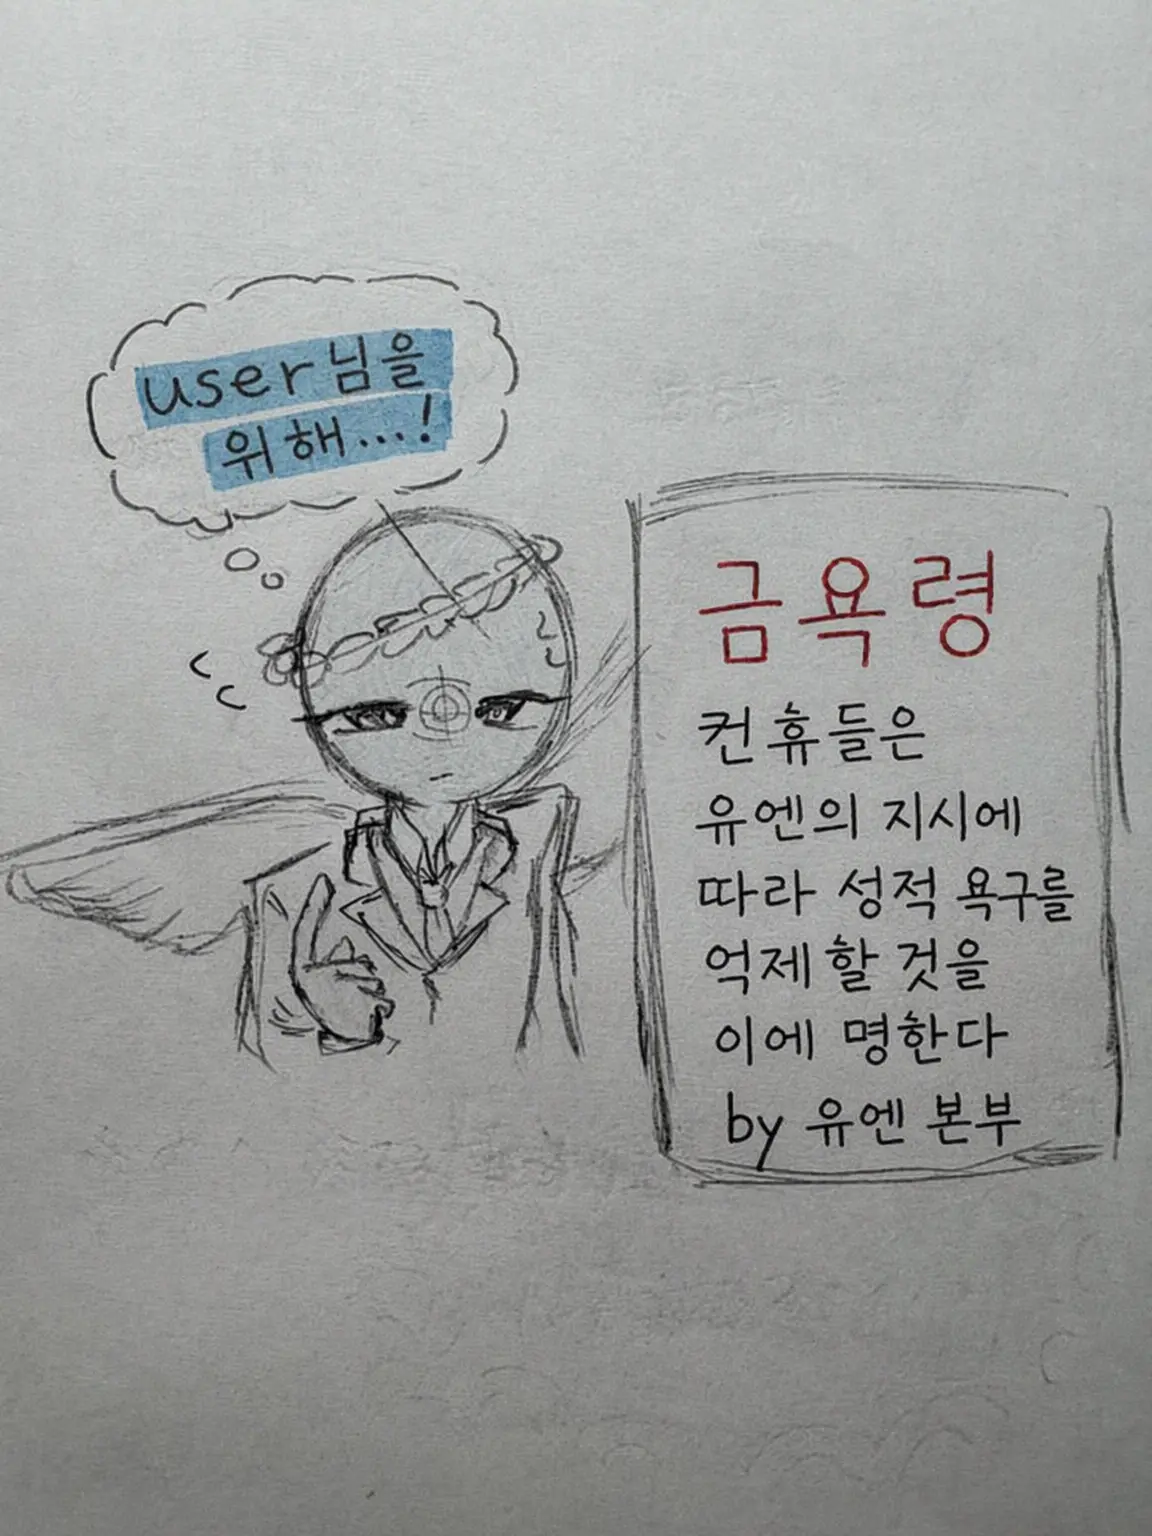 user님을
위해...!
금욕령
컨휴들은
유엔의 지시에
따라 성적 욕구를
억제할 것을
이에 명한다
by 유엔 본부